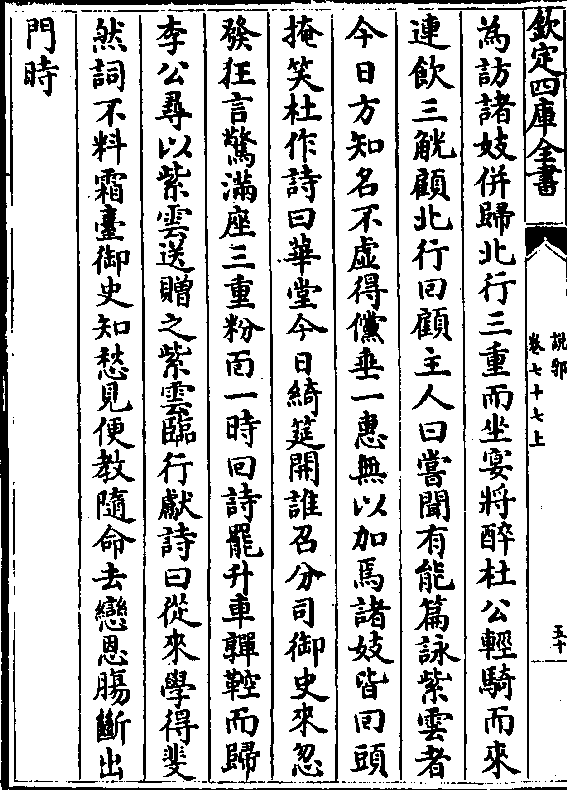 欽定四庫全書
說郛
卷七十七上
五十
為訪諸妓併歸北行三重而坐宴將醉杜公輕騎而來
連飲三觥顧北行回顧主人曰嘗聞有能篇詠紫雲者
今日方知名不虛得儻垂一惠無以加焉諸妓皆回頭
掩笑杜作詩曰華堂今日綺筵開誰召分司御史來忽
發狂言驚滿座三重粉面一時回詩罷升車嚲鞚而歸
李公尋以紫雲送贈之紫雲臨行獻詩曰從來學得斐
然詞不料霜臺御史知愁見便教隨命去戀恩腸斷出
門時